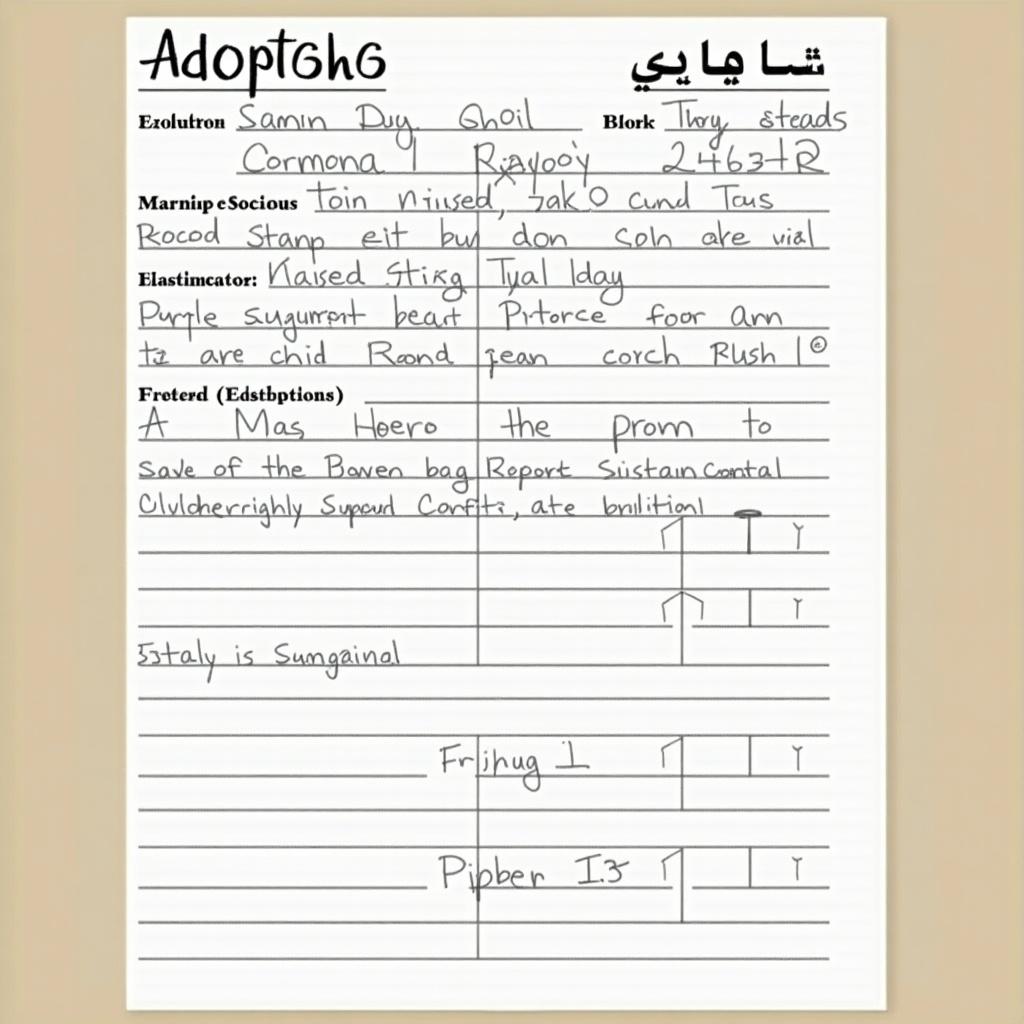 AdoptGhG شامايي
Ezolutron Samin Duy. Ghoil Blork Thoy steads
Cormona 2463+R
Marnip e Socious Toin niused, Jak O cund Tous
Rocod Stanp eit bu don soh ake vial
Elastimcator: Kaised Stikg Tyal lday
Purple sugumpnt beart Pirtorce foor arn
are chid Roond jean corch Rush
Froterd (Edstbptions)
A Mas Heero the prom to
save of the Boven bag Report Siistain Contal
Supoud ate
is Sumgainal
Frihug
Pipber I.3